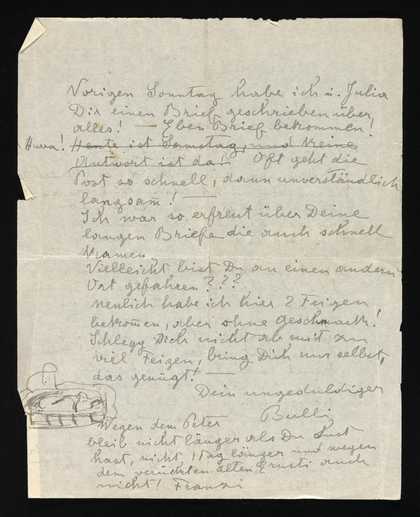 Vorigen Sonntag habe ich u. Julia
Dir einen Brief geschrieben über
alles! — Eben Brief bekommen
Hurra! Heute ist Samstag, und keine
Antwort ist da. Oft geht die
Post so schnell, dann unverständlich
langsam! —
Ich war so erfreut über Deine
langen Briefe die auch schnell
kamen.
Vielleicht bist Du an einen andern
Ort gefahren???
Neulich habe ich hier 2 Feigen
bekommen, aber ohne Geschmack!
Schlepp Dich nicht ab mit zu
viel Feigen, bring Dich nur selbst,
das genügt! —
Dein ungeduldiger
Bulli
Wegen dem Peter
bleib nicht länger als Du Lust
hast, nicht 1 Tag länger und wegen
dem verückten alten Ernsti auch
nicht! Franzi